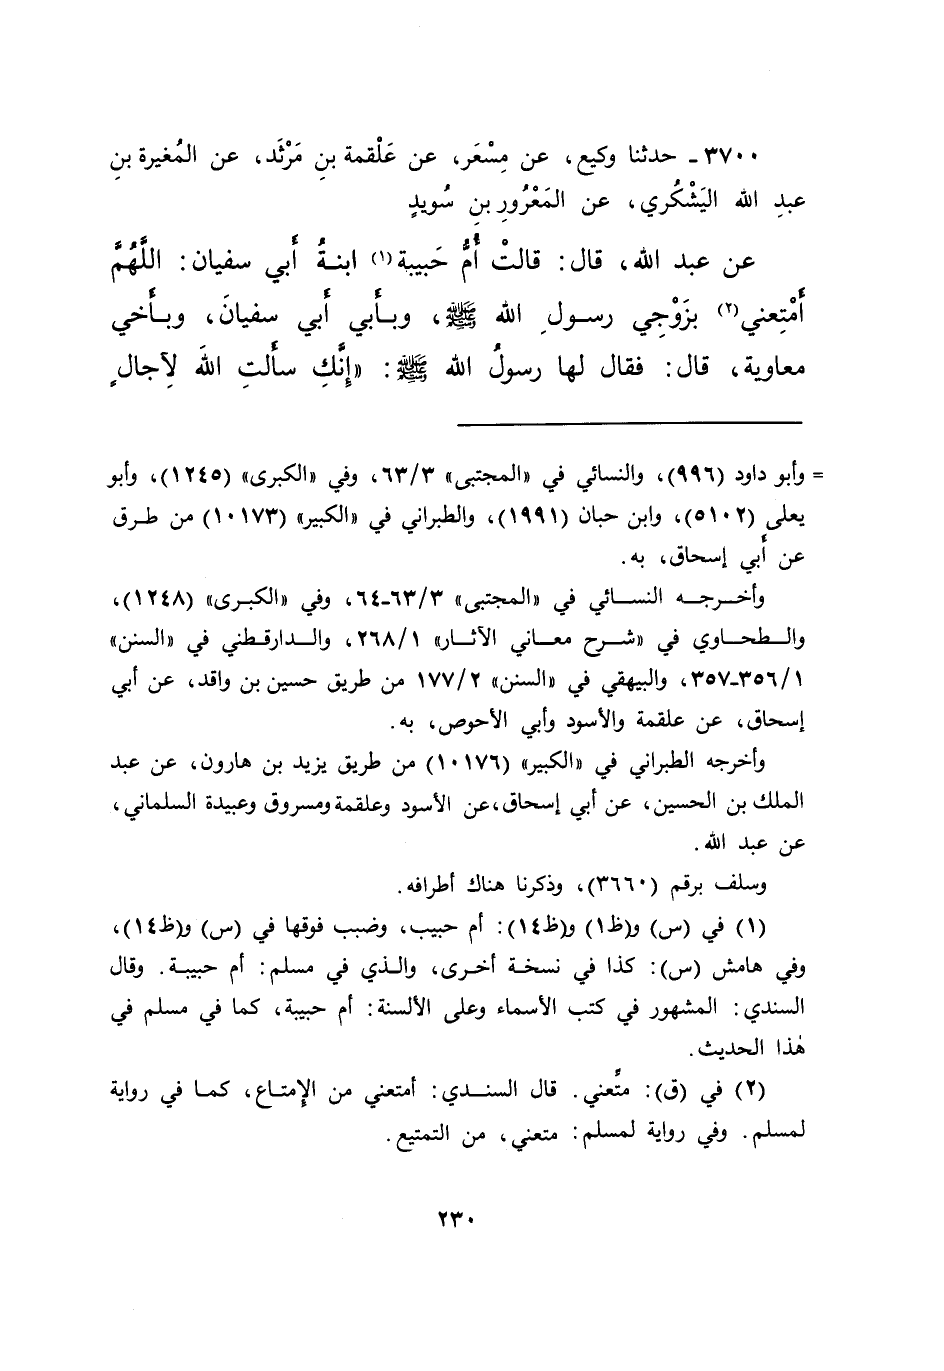 ٣٧٠٠ ـ حدثنا وكيع، عن مِسْعَر، عن عَلْقمة بنِ مَرْثَد، عن المُغيرة بنِ
عبدِ الله اليَشْكُري، عن المَعْرُورِ بنِ سُويدٍ
عن عبد الله، قال: قالتْ أُمُّ حَبيبة(١) ابنةُ أَبي سفيان: اللَّهُمَّ
أَمْتِعني(٢) بزَوْجِي رسولِ الله ﷺ، وبأَبي أَبي سفيانَ، وبأَخي
معاوية، قال: فقال لها رسولُ الله ﷺ: «إِنَّكِ سأَلتِ اللهَ لِآجالٍ
= وأبو داود (٩٩٦)، والنسائي في «المجتبى» ٦٣/٣، وفي «الكبرى» (١٢٤٥)، وأبو
يعلى (٥١٠٢)، وابن حبان (١٩٩١)، والطبراني في «الكبير» (١٠١٧٣) من طرق
عن أَبي إسحاق، به.
وأخرجه النسائي في «المجتبى» ٦٣/٣-٦٤، وفي «الكبرى» (١٢٤٨)،
والطحاوي في «شرح معاني الآثار» ٢٦٨/١، والدارقطني في «السنن»
٣٥٦/١-٣٥٧، والبيهقي في «السنن» ١٧٧/٢ من طريق حسين بن واقد، عن أبي
إسحاق، عن علقمة والأسود وأبي الأحوص، به.
وأخرجه الطبراني في «الكبير» (١٠١٧٦) من طريق يزيد بن هارون، عن عبد
الملك بن الحسين، عن أبي إسحاق، عن الأسود وعلقمة ومسروق وعبيدة السلماني،
عن عبد الله.
وسلف برقم (٣٦٦٠)، وذكرنا هناك أطرافه.
(١) في (س) و(ظ١) و(ظ١٤): أم حبيب، وضبب فوقها في (س) و(ظ١٤)،
وفي هامش (س): كذا في نسخة أخرى، والذي في مسلم: أم حبيبة. وقال
السندي: المشهور في كتب الأسماء وعلى الألسنة: أم حبيبة، كما في مسلم في
هٰذا الحديث.
(٢) في (ق): متِّعني. قال السندي: أمتعني من الإمتاع، كما في رواية
لمسلم. وفي رواية لمسلم: متعني، من التمتيع.
٢٣٠